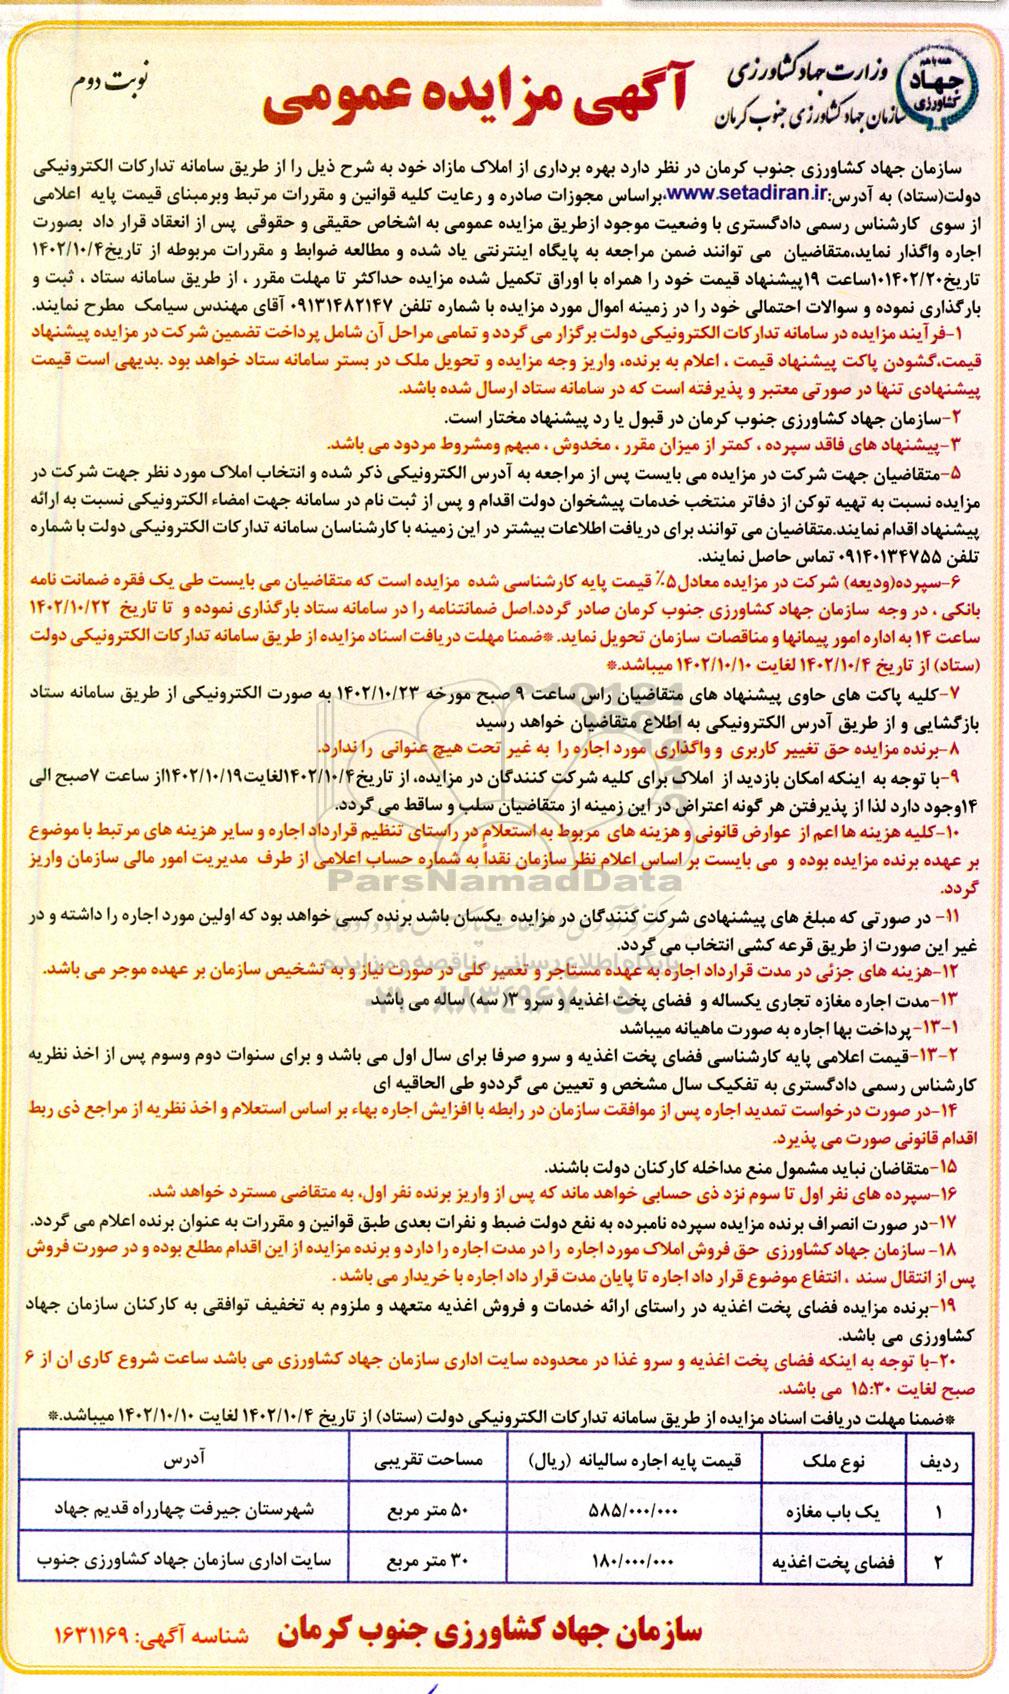 همه با هم
جهاد
کشاورزی
وزارت جهاد کشاورزی
سازمان جهاد کشاورزی جنوب کرمان
آگهی مزایده عمومی
نوبت دوم
سازمان جهاد کشاورزی جنوب کرمان در نظر دارد بهره برداری از املاک مازاد خود به شرح ذیل را از طریق سامانه تدارکات الکترونیکی
دولت(ستاد) به آدرس:www.setadiran.ir،براساس مجوزات صادره و رعایت کلیه قوانین و مقررات مرتبط وبرمبنای قیمت پایه اعلامی
از سوی کارشناس رسمی دادگستری با وضعیت موجود ازطریق مزایده عمومی به اشخاص حقیقی و حقوقی پس از انعقاد قرار داد بصورت
اجاره واگذار نماید،متقاضیان می توانند ضمن مراجعه به پایگاه اینترنتی یاد شده و مطالعه ضوابط و مقررات مربوطه از تاریخ۱۴۰۲/۱۰/۴
تاریخ۱۰۱۴۰۲/۲۰ساعت ۱۹پیشنهاد قیمت خود را همراه با اوراق تکمیل شده مزایده حداکثر تا مهلت مقرر ، از طریق سامانه ستاد ، ثبت و
بارگذاری نموده و سوالات احتمالی خود را در زمینه اموال مورد مزایده با شماره تلفن ۰۹۱۳۱۴۸۲۱۴۷ آقای مهندس سیامک مطرح نمایند.
۱-فرآیند مزایده در سامانه تدارکات الکترونیکی دولت برگزار می گردد و تمامی مراحل آن شامل پرداخت تضمین شرکت در مزایده پیشنهاد
قیمت،گشودن پاکت پیشنهاد قیمت ، اعلام به برنده، واریز وجه مزایده و تحویل ملک در بستر سامانه ستاد خواهد بود .بدیهی است قیمت
پیشنهادی تنها در صورتی معتبر و پذیرفته است که در سامانه ستاد ارسال شده باشد.
۲-سازمان جهاد کشاورزی جنوب کرمان در قبول یا رد پیشنهاد مختار است.
۳-پیشنهاد های فاقد سپرده ، کمتر از میزان مقرر ، مخدوش ، مبهم ومشروط مردود می باشد.
۵-متقاضیان جهت شرکت در مزایده می بایست پس از مراجعه به آدرس الکترونیکی ذکر شده و انتخاب املاک مورد نظر جهت شرکت در
مزایده نسبت به تهیه توکن از دفاتر منتخب خدمات پیشخوان دولت اقدام و پس از ثبت نام در سامانه جهت امضاء الکترونیکی نسبت به ارائه
پیشنهاد اقدام نمایند.متقاضیان می توانند برای دریافت اطلاعات بیشتر در این زمینه با کارشناسان سامانه تدارکات الکترونیکی دولت با شماره
تلفن ۰۹۱۴۰۱۳۴۷۵۵ تماس حاصل نمایند.
۶-سپرده(ودیعه) شرکت در مزایده معادل۵٪ قیمت پایه کارشناسی شده مزایده است که متقاضیان می بایست طی یک فقره ضمانت نامه
بانکی ، در وجه سازمان جهاد کشاورزی جنوب کرمان صادر گردد.اصل ضمانتنامه را در سامانه ستاد بارگذاری نموده و تا تاریخ ۱۴۰۲/۱۰/۲۲
ساعت ۱۴ به اداره امور پیمانها و مناقصات سازمان تحویل نماید. *ضمنا مهلت دریافت اسناد مزایده از طریق سامانه تدارکات الکترونیکی دولت
(ستاد) از تاریخ ۱۴۰۲/۱۰/۴ لغایت ۱۴۰۲/۱۰/۱۰ میباشد.*
۷-کلیه پاکت های حاوی پیشنهاد های متقاضیان راس ساعت ۹ صبح مورخه ۱۴۰۲/۱۰/۲۳ به صورت الکترونیکی از طریق سامانه ستاد
بازگشایی و از طریق آدرس الکترونیکی به اطلاع متقاضیان خواهد رسید
۸-برنده مزایده حق تغییر کاربری و واگذاری مورد اجاره را به غیر تحت هیچ عنوانی را ندارد.
۹-با توجه به اینکه امکان بازدید از املاک برای کلیه شرکت کنندگان در مزایده، از تاریخ۱۴۰۲/۱۰/۴لغایت۱۴۰۲/۱۰/۱۹از ساعت ۷صبح الی
۱۴وجود دارد لذا از پذیرفتن هر گونه اعتراض در این زمینه از متقاضیان سلب و ساقط می گردد.
۱۰-کلیه هزینه ها اعم از عوارض قانونی و هزینه های مربوط به استعلام در راستای تنظیم قرارداد اجاره و سایر هزینه های مرتبط با موضوع
بر عهده برنده مزایده بوده و می بایست بر اساس اعلام نظر سازمان نقداً به شماره حساب اعلامی از طرف مدیریت امور مالی سازمان واریز
گردد.
ParsNamadData
۱۱- در صورتی که مبلغ های پیشنهادی شرکت کنندگان در مزایده یکسان باشد برنده کسی خواهد بود که اولین مورد اجاره را داشته و در
غیر این صورت از طریق قرعه کشی انتخاب می گردد.
پایگاه اطلاع رسانی مناقصه و مزایده
۱۲-هزینه های جزئی در مدت قرارداد اجاره به عهده مستاجر و تعمیر کلی در صورت نیاز و به تشخیص سازمان بر عهده موجر می باشد.
۱۳-مدت اجاره مغازه تجاری یکساله و فضای پخت اغذیه و سرو ۳( سه) ساله می باشد
۱-۱۳-پرداخت بها اجاره به صورت ماهیانه میباشد
۲-۱۳-قیمت اعلامی پایه کارشناسی فضای پخت اغذیه و سرو صرفا برای سال اول می باشد و برای سنوات دوم وسوم پس از اخذ نظریه
کارشناس رسمی دادگستری به تفکیک سال مشخص و تعیین می گرددو طی الحاقیه ای
۱۴-در صورت درخواست تمدید اجاره پس از موافقت سازمان در رابطه با افزایش اجاره بهاء بر اساس استعلام و اخذ نظریه از مراجع ذی ربط
اقدام قانونی صورت می پذیرد.
۱۵-متقاضان نباید مشمول منع مداخله کارکنان دولت باشند.
۱۶-سپرده های نفر اول تا سوم نزد ذی حسابی خواهد ماند که پس از واریز برنده نفر اول، به متقاضی مسترد خواهد شد.
۱۷-در صورت انصراف برنده مزایده سپرده نامبرده به نفع دولت ضبط و نفرات بعدی طبق قوانین و مقررات به عنوان برنده اعلام می گردد.
۱۸- سازمان جهاد کشاورزی حق فروش املاک مورد اجاره را در مدت اجاره را دارد و برنده مزایده از این اقدام مطلع بوده و در صورت فروش
پس از انتقال سند ، انتفاع موضوع قرار داد اجاره تا پایان مدت قرار داد اجاره با خریدار می باشد .
۱۹-برنده مزایده فضای پخت اغذیه در راستای ارائه خدمات و فروش اغذیه متعهد و ملزوم به تخفیف توافقی به کارکنان سازمان جهاد
کشاورزی می باشد.
۲۰-با توجه به اینکه فضای پخت اغذیه و سرو غذا در محدوده سایت اداری سازمان جهاد کشاورزی می باشد ساعت شروع کاری ان از ۶
صبح لغایت ۱۵:۳۰ می باشد.
*ضمنا مهلت دریافت اسناد مزایده از طریق سامانه تدارکات الکترونیکی دولت (ستاد) از تاریخ ۱۴۰۲/۱۰/۴ لغایت ۱۴۰۲/۱۰/۱۰ میباشد.*
ردیف نوع ملک قیمت پایه اجاره سالیانه (ریال) مساحت تقریبی آدرس
۱ یک باب مغازه ۵۸۵/۰۰۰/۰۰۰ ۵۰ متر مربع شهرستان جیرفت چهارراه قدیم جهاد
۲ فضای پخت اغذیه ۱۸۰/۰۰۰/۰۰۰ ۳۰ متر مربع سایت اداری سازمان جهاد کشاورزی جنوب
سازمان جهاد کشاورزی جنوب کرمان
شناسه آگهی: ۱۶۳۱۱۶۹